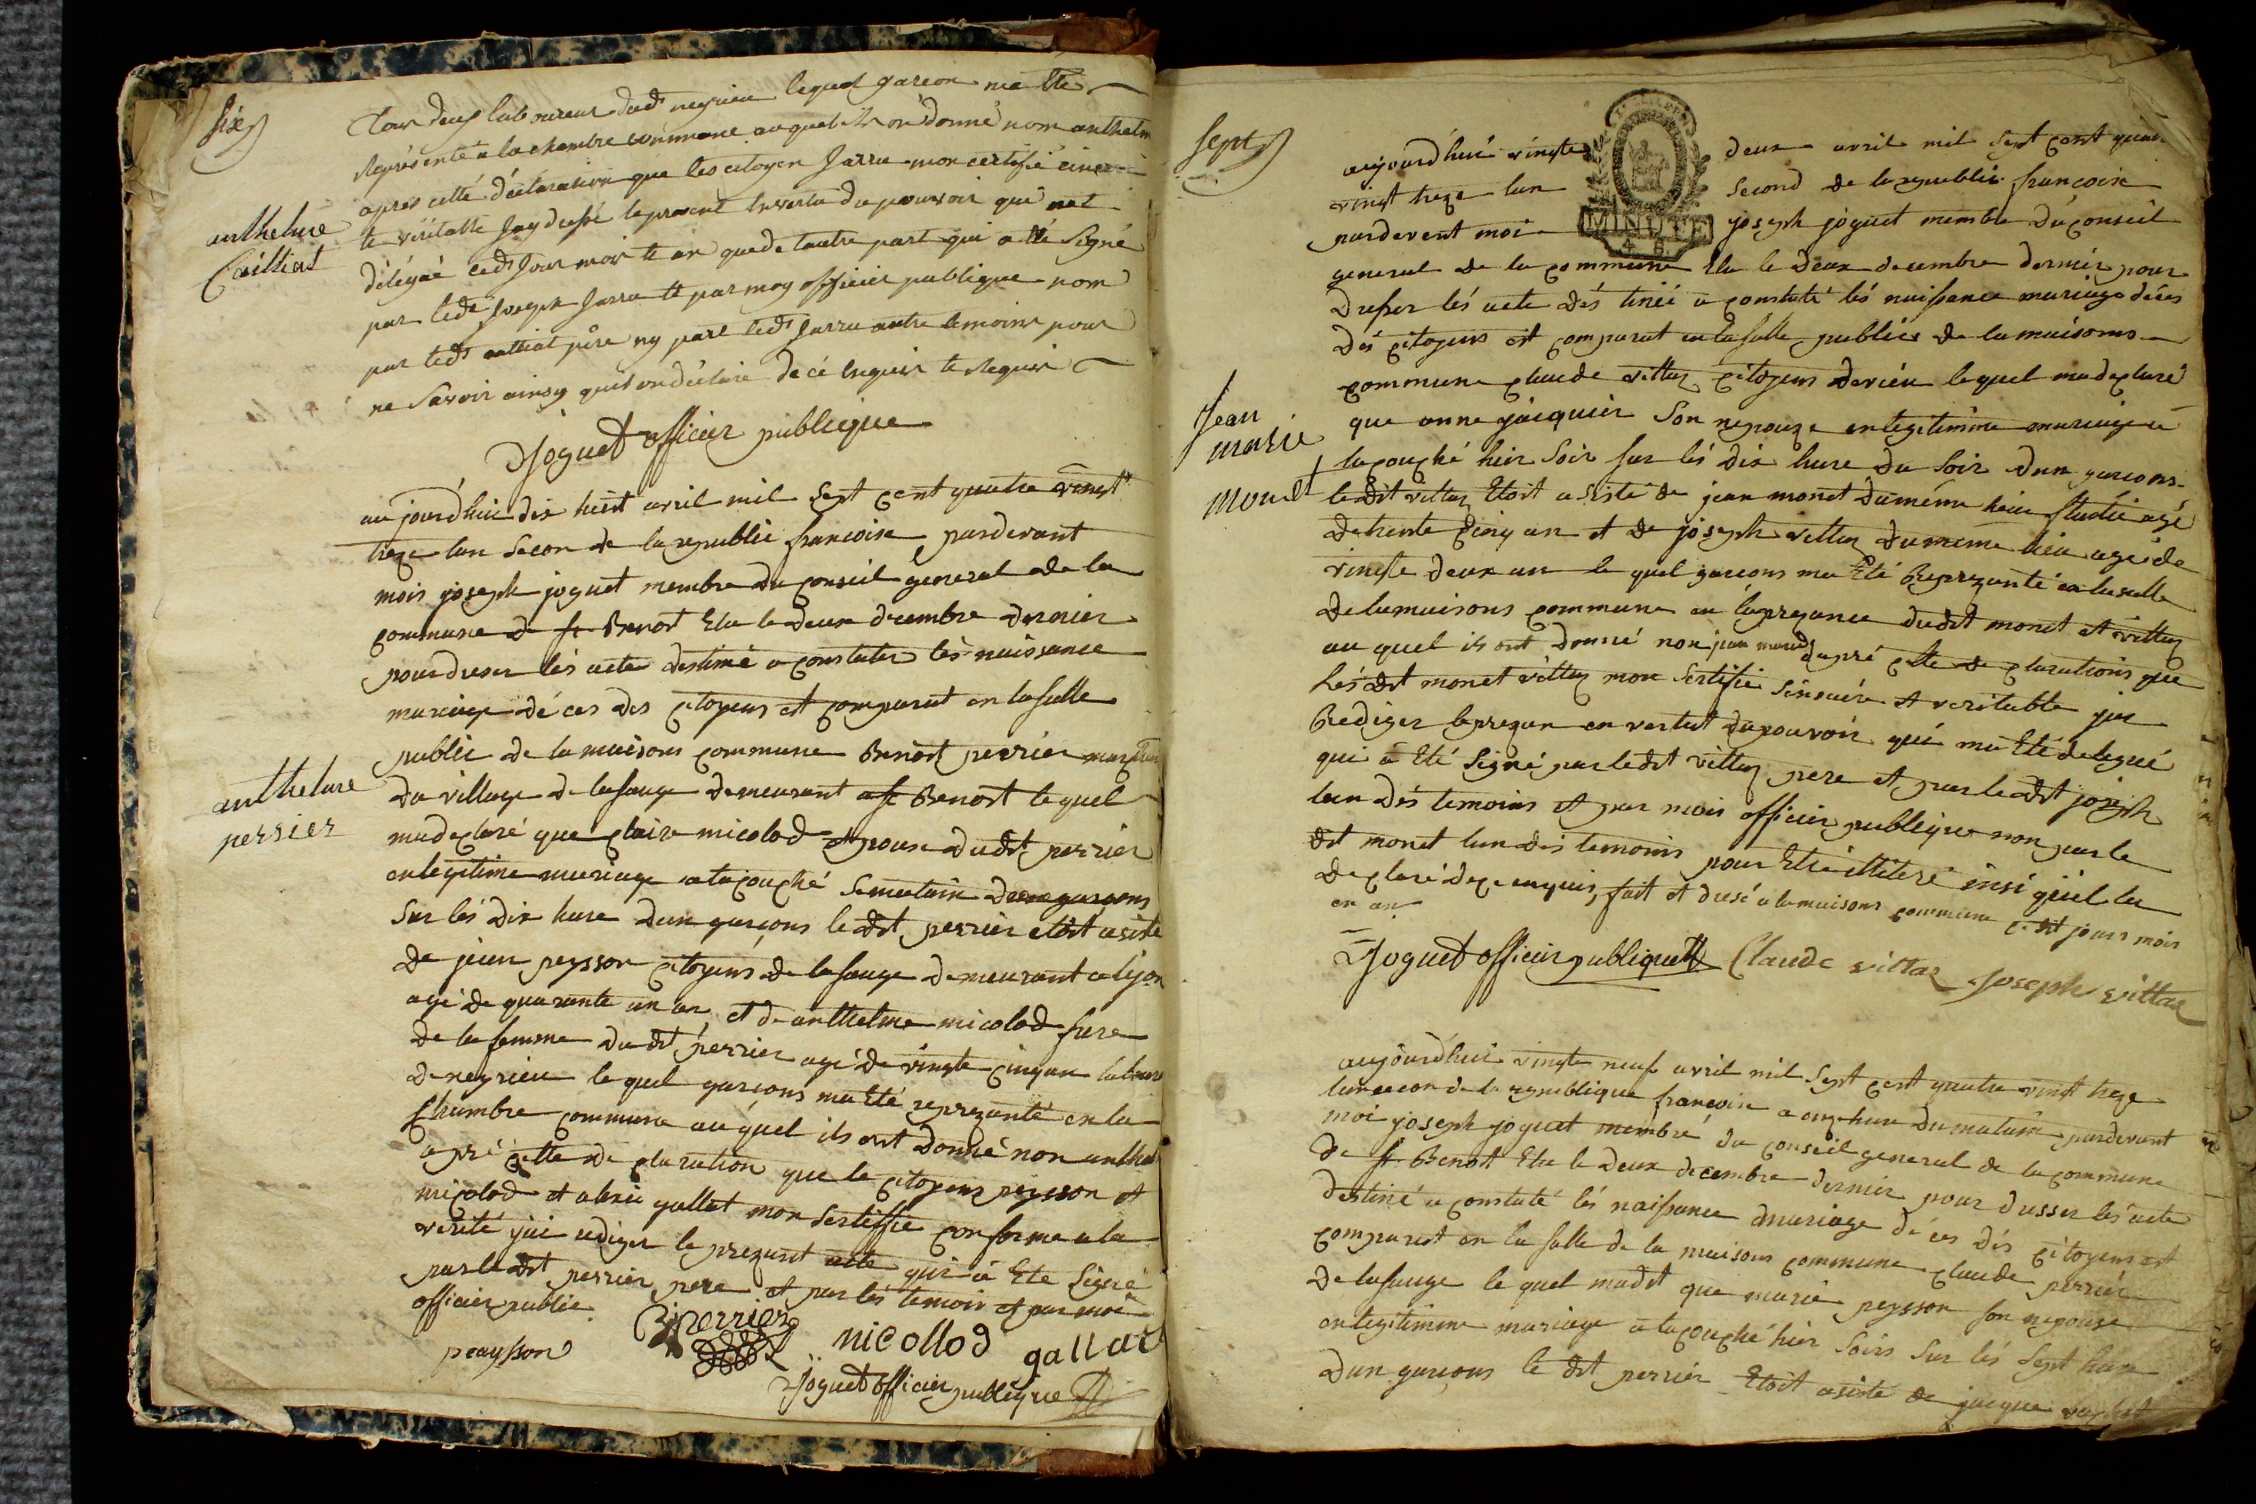 six
tous deux laboureur dud neyrieu lequel garcon ma Ete
Représenté a la chambre commune auquel ils on donné nom anthelm
apres cette déclaration que les citoyen Jarru mon certifié
et véritable Jay dressé le present En vertu du pouvoir qui mest
délégué ced Jour mois et an que de lautre part qui a été Signé
par led Joseph Jarru et par moy officier publique nom
par led père ny part led Jarru autre temoins pour
ne Savoir ainsy quil on déclaré de cé Enquis et Requis
anthelme
Cailliat
Joguet officier publique
aujourdhui dix huit avril mil Sept cent quatre vingt
treze lan Secon de la republic francoise pardevant
mois joseph joguet membre du conseil general de la
commune de st Benoit Elu le deux decembre dernier
pour dreser lés acte destiné a constater lés naissance
mariage dé ces des citoyens est comparut en la salle
public de la maisons commune Benoit perrier
du village de lasauge demeurant a st Benoit lequel
anthelme
perrier
ma declaré que claire micolod epouse dudit perrier
en legitime mariage a lacouché se matain
Sur lés dix hure dun garçons le dit perrier etoit asisté
de jean peysson citoyens de lasauge demeurant a lyon
agé de quarante un an et de anthelme micolod frere
de la femme du dit perrier agé de vingte cinq an
de neyrieu le quel garçons ma Eté reprezanté en la
chambre commune auquel ils ont donné non anthel
apré cette de claration que le citoyens peysson et
micolod et gallet mon sertiffie conforme a la
verité jai rediger le prezant acte qui a Ete Signé
par le dit perrier pere et par lés temoin et par moi
officier public
B perrier
peaysson nicollod gallat
Joguet officier publique
sept
aujourdhui vingte deux avril mil Sept cent quatre
vingt treze lan Second de la republic francoise
pardevent moi joseph joguet membre du conseil
MINUTE
4 S
general de la commune Elu le deux decembre dernier pour
dresser lés acte dés tiné a constaté lés naissance mariage décès
dés citoyens est comparut en la salle public de la maisons
commune claude vittaz citoyens lequel ma declaré
que anne jacquier Son nepouze en legitimme mariage a
Jean
marie
monet
lacouché hier Soir sur lés dix hure du soir dun garcons
ledit vittaz Etoit a sisté de jean monet du méme lieu agé
de trente cinq an et de joseph vittaz du meme lieu agé de
vingte deux an le quel garcons ma Eté Reprezanté en la salle
de la maisons commune en la prezance dudit monet et vittaz
au quel ils ont donné non jean marie apré cette de clarations que
lés dit monet vittaz mon sertifie sinsaire et veritable jai
Rediger le prezan en vertut du pouvoir qui ma Eté delegué
qui a Eté Signé par ledit vittaz pere et par ledit joseph
lun dés temoins et par mois officier publique non par le
dit monet lun dés temoins pour Etre illiteré insi quil la
declaré de ce enquis, fait et dresé a la maisons commune ce dit jours mois
en an
Joguet officier publique Claude vittaz Joseph vittaz
aujourdhui vingte neuf avril mil Sept cent quatre vingt treze
lan secon de la republique francoise a onze hure du matain pardevant
moi joseph joguet membre du conseil general de la commune
de st Benoit Elu le deux decembre dernier pour dresser lés acte
destiné a constaté lés naissance mariage dé ces dés citoyens est
comparut en la salle de la maisons commune claude perrier
de lasauge le quel ma dit que marie peysson son nepouse
en legitimme mariage a lacouché hier soirs sur lés sept hure
dun garçons le dit perrier Etoit asisté de jacque